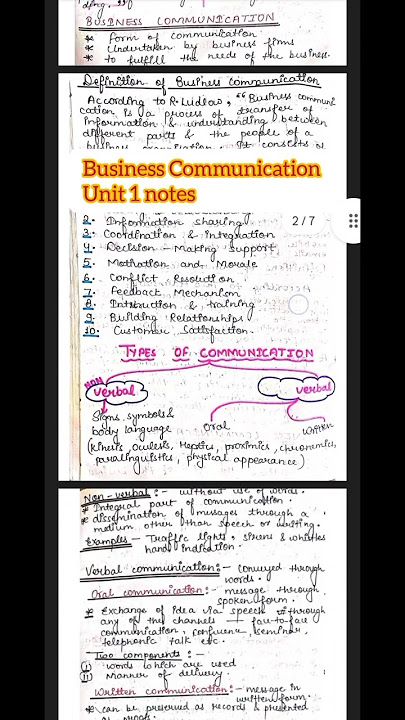 ding.
BUSINESS COMMUNICATION
* form of communication
* undertaken by business firms
* to fulfill the needs of the business.
Definition of Business communication
According to R. Ludlow, "Business communi
cation is a process of transfer of
information & understanding between
different parts & the people of a
business organisation. It consists of
Business Communication
Unit 1 notes
2. Information sharing
2/7
3. Coordination & integration
4. Decision-Making support
5. Motivation and Morale
6. Conflict Resolution
7. Feedback Mechanism
8. Instruction & training
9. Building Relationships
10. Customer Satisfaction.
TYPES OF COMMUNICATION
NON
verbal
verbal
Signs, symbols &
body language
oral
written
(kinesis, oculesis, Haptics, proximics, chronomics,
paralinguistics, physical appearance)
Non-verbal:- without use of words.
* Integral part of communication.
* dissemination of messages through a
medium other than speech or writing.
Examples - Traffic lights, sirens & whistles
hand indication.
Verbal communication:- conveyed through
words.
Oral communication:- message through
spoken form.
* Exchange of idea via speech through
any of the channels - face-to-face
communication, conference, seminar,
telephonic talk etc.
- Two components:-
(I) words which are used
(II) Manner of delivery
Written communication:- message in
written form.
* can be preserved as records & presented
as proof.